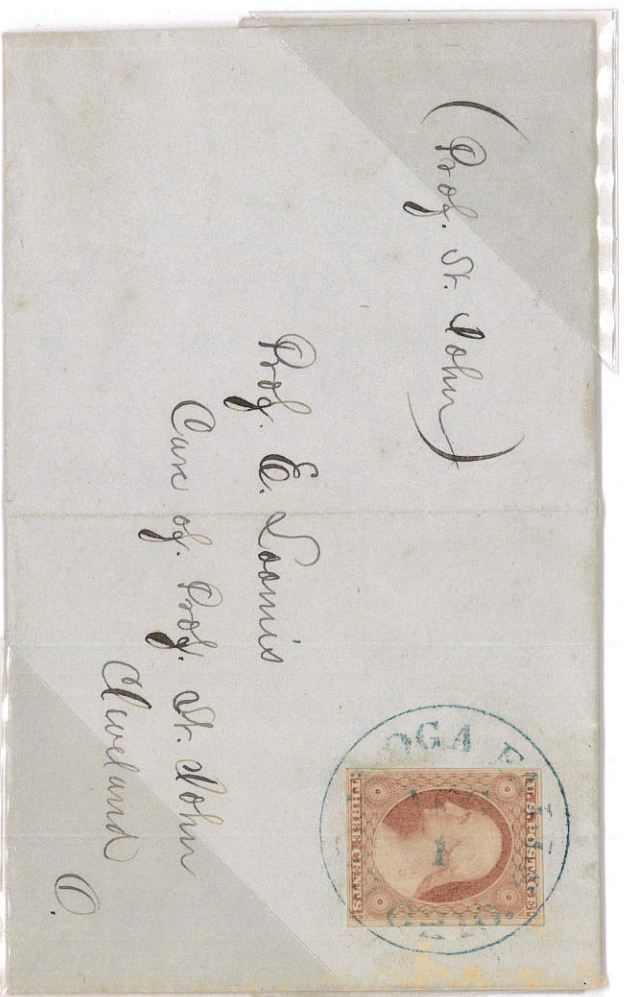 (Prof. St. John)
Prof. E. Loomis
Care of. Prof. St. John
Cleveland
O.
U.S. POSTAGE
THREE CENTS
OGA F
OHIO.